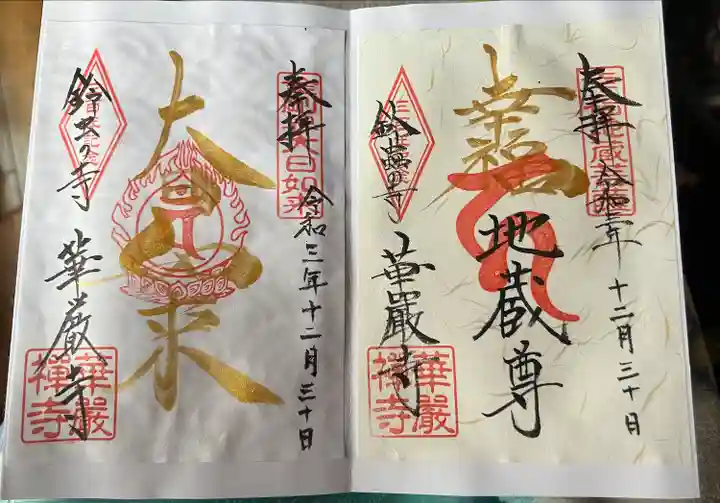 奉拝
令和三年十二月三十日
大日如来
鈴虫の寺
華厳寺
華嚴禅寺
奉拝
令和三年
十二月三十日
幸福
地蔵尊
鈴蟲の寺
華嚴寺
華嚴禅寺